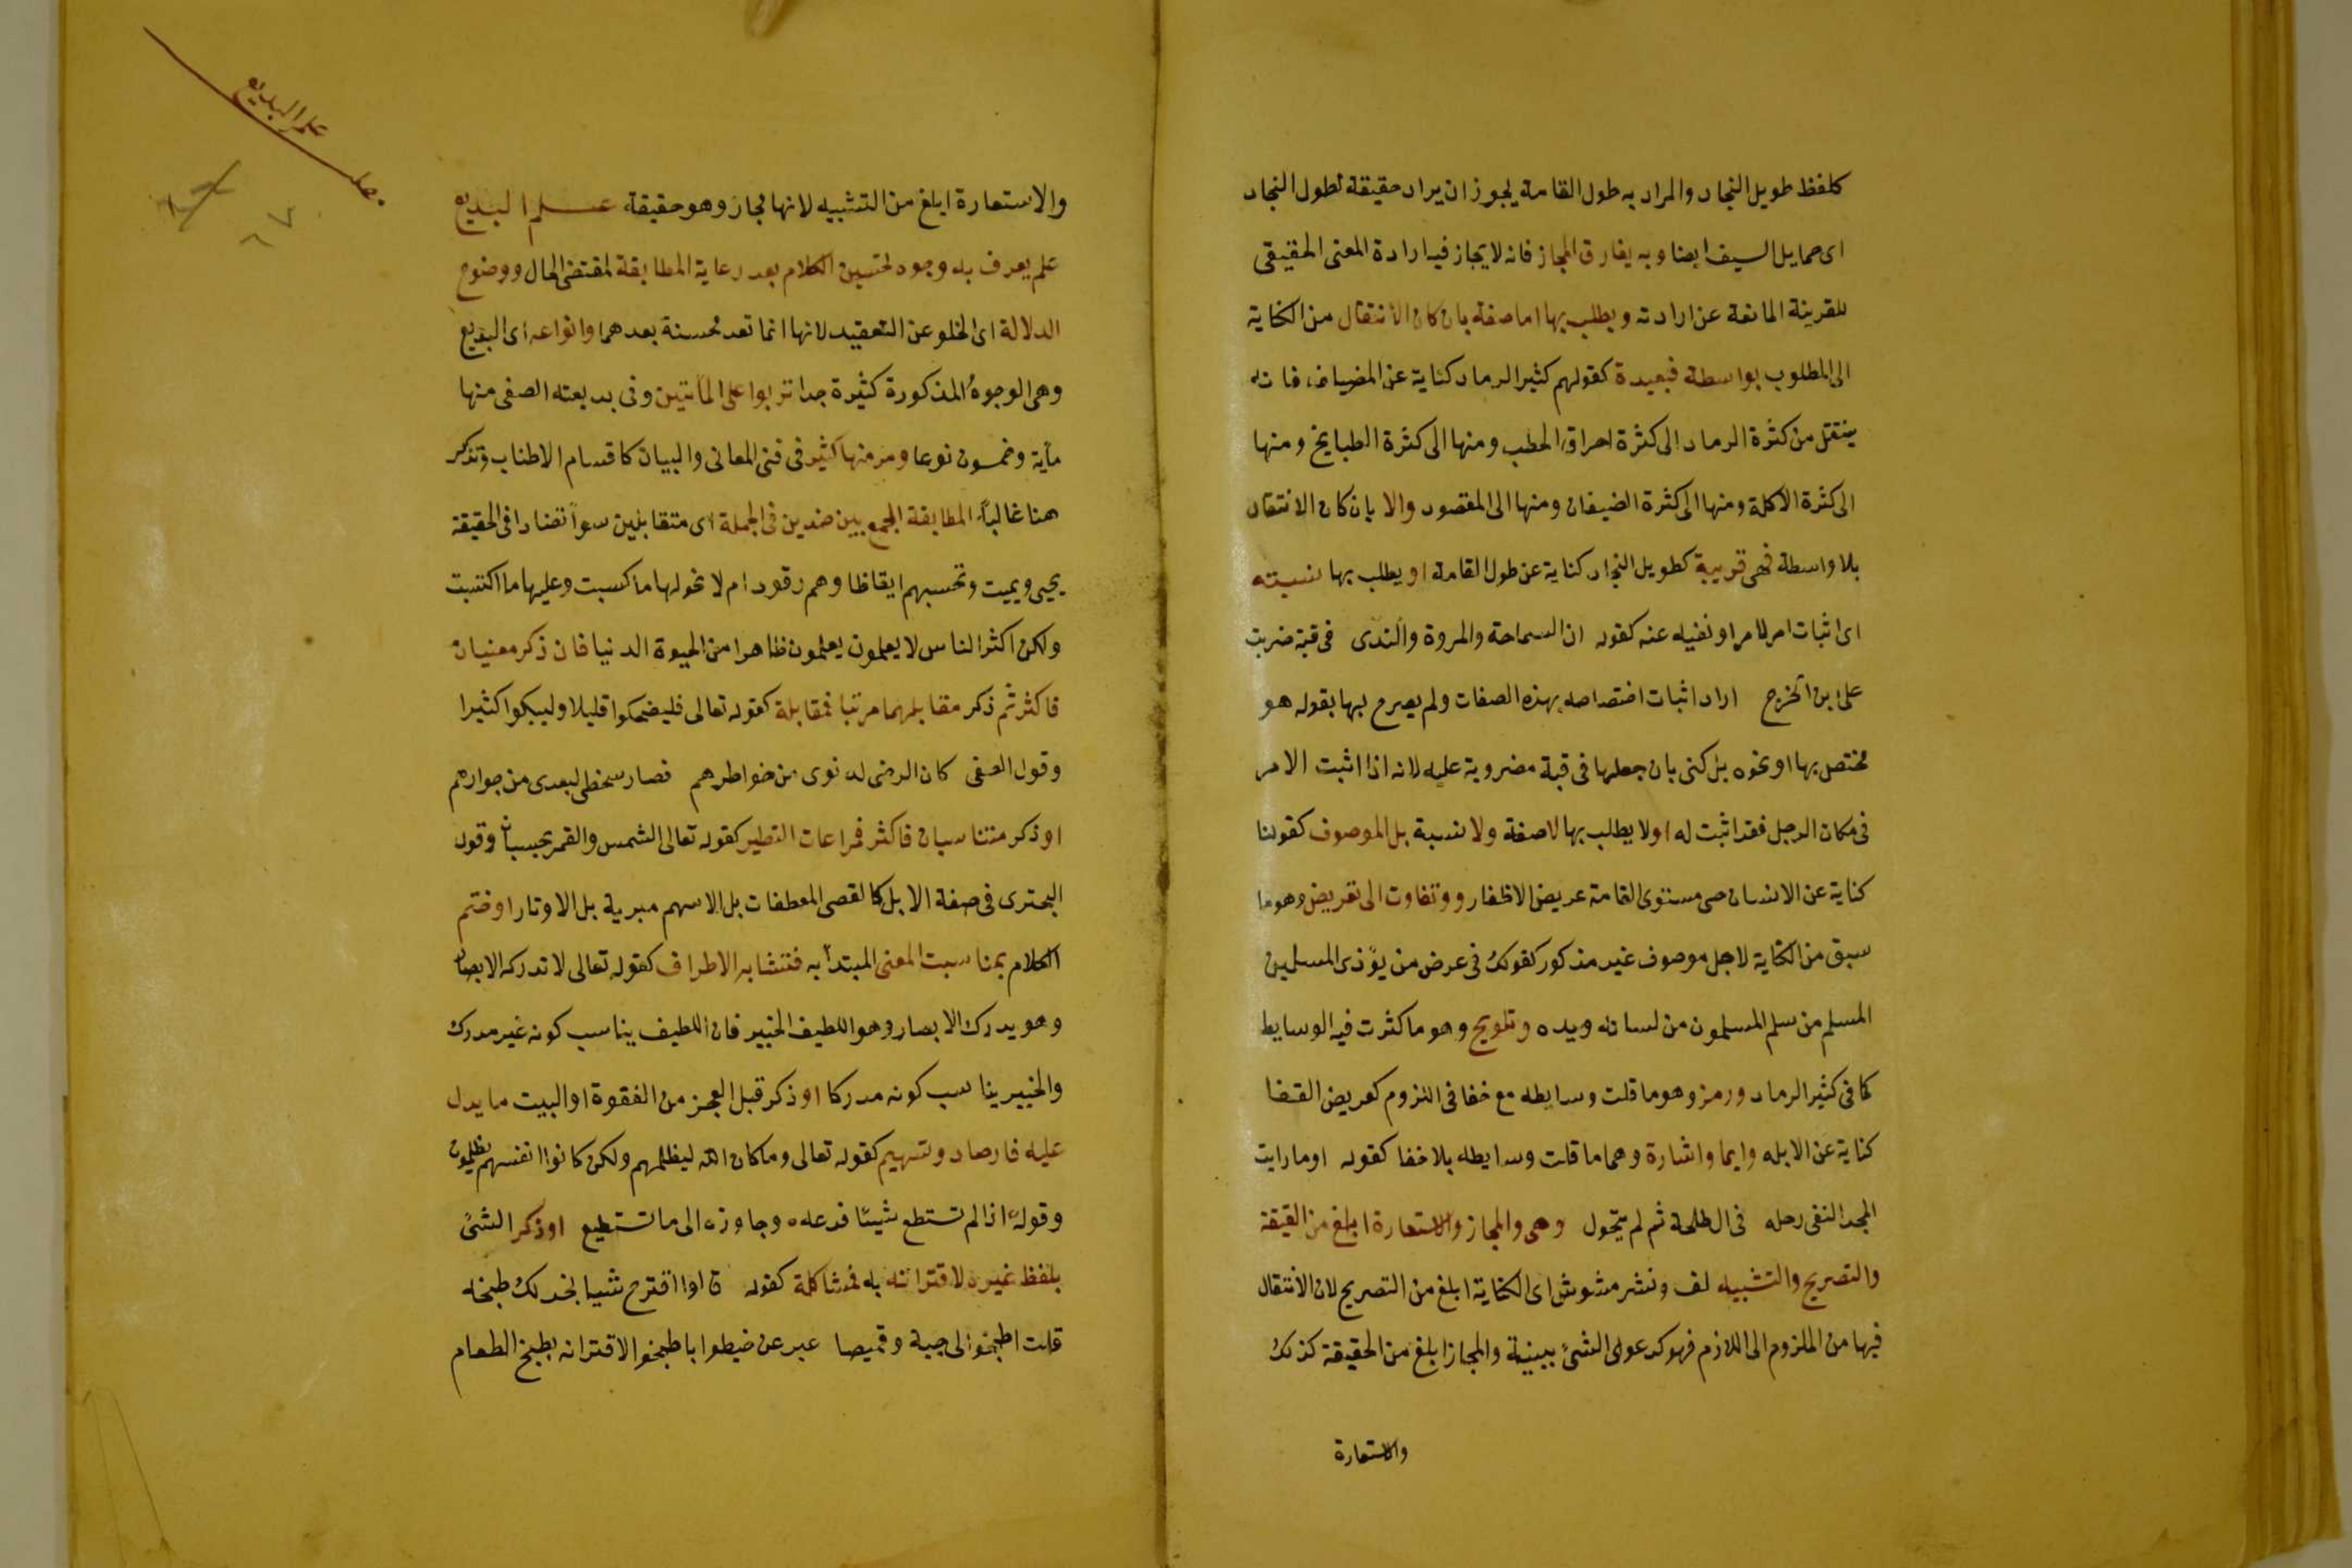 كلفظ طويل النجاد والمراد به طول القامة يجوز ان يراد حقيقة لطول النجاد
اى حمايل السيف ايضا وبه يفارق المجاز فانه لا يجاز فيه ارادة المعنى الحقيقى
للقرينة المانعة عن ارادته ويطلب بها اما صفة بان كان الانتقال من الكناية
الى المطلوب بواسطة فبعيدة كقولهم كثير الرماد كناية عن المضياف فانه
ينتقل من كثرة الرماد الى كثرة احراق الحطب ومنها الى كثرة الطبايخ ومنها
الى كثرة الاكلة ومنها الى كثرة الضيفان ومنها الى المقصود والا بان كان الانتقال
بلا واسطة فهى قريبة كطويل النجاد كناية عن طول القامة او يطلب بها نسبته
اى اثبات امر لامر او نفيه عنه كقوله ان السماحة والمروة والندى فى قبة ضربت
على ابن الخرج اراد اثبات اختصاصه بهذه الصفات ولم يصرح بها بقوله هو
مختص بها او نحوه بل كنى بان جعلها فى قبة مضروبة عليه لانه اذا اثبت الامر
فى مكان الرجل فقد اثبت له او لا يطلب بها لا صفة ولا نسبة بل الموصوف كقولنا
كناية عن الانسان حى مستوى القامة عريض الاظفار ووتفاوت الى تعريض وهو ما
سبق من الكناية لاجل موصوف غير مذكور كقولك فى عرض من يؤذى المسلمين
المسلم من سلم المسلمون من لسانه ويده وتلويح وهو ما كثرت فيه الوسايط
كما فى كثير الرماد ورمز وهو ما قلت وسايطه مع خفا فى اللزوم كعريض القفا
كناية عن الابله وايما واشارة وهما ما قلت وسايطه بلا خفا كقوله اوما رايت
المجد القى رحله فى ال طلحة ثم لم يتحول وهى والمجاز والاستعارة ابلغ من القيقة
والتصريح والتشبيه لف ونشر مشوش اى الكناية ابلغ من التصريح لان الانتقال
فيها من الملزوم الى اللازم فهو كدعوى الشئ ببينة والمجاز ابلغ من الحقيقة كذلك
والاستعارة
علم البديع
والاستعارة ابلغ من التشبيه لانها مجاز وهو حقيقة علم البديع
علم يعرف به وجوه تحسين الكلام بعد رعاية المطابقة لمقتضى الحال ووضوح
الدلالة اى الخلو عن التعقيد لانها انما تعد محسنة بعدهما وانواعه اى البديع
وهى الوجوه المذكورة كثيرة جدا تربوا على المأتين وفى بديعته الصفى منها
مأية وخمسون نوعا ومر منها كثير فى فنى المعانى والبيان كاقسام الاطناب وتذكر
هنا غالبا المطابقة الجمع بين ضدين فى الجملة اى متقابلين سوآ تضادا فى الحقيقة
يحيى ويميت وتحسبهم ايقاظا وهم رقود ام لا نحو لها ما كسبت وعليها ما اكتسبت
ولكن اكثر الناس لا يعلمون يعلمون ظاهرا من الحيوة الدنيا فان ذكر معنيان
فاكثر ثم ذكر مقابلهما مرتبا فمقابلة كقوله تعالى فليضحكوا قليلا وليبكوا كثيرا
وقول الصفى كان الرضى لدنوى من خواطرهم فصار سخطى لبعدى من جوارهم
او ذكر متناسبان فاكثر فمراعات النظير كقوله تعالى الشمس والقمر بحسبان وقول
البحترى فى صفة الابل كالقصى المعطفات بل الاسهم مبرية بل الاوتار او ختم
الكلام بمناسبت المعنى المبتدأ به فتشابه الاطراف كقوله تعالى لا تدركه الابصار
وهو يدرك الابصار وهو اللطيف الخبير فان اللطيف يناسب كونه غير مدرك
والخبير يناسب كونه مدركا او ذكر قبل العجز من الفقوة او البيت ما يدل
عليه فارصاد وتسهيم كقوله تعالى وما كان الله ليظلمهم ولكن كانوا انفسهم يظلمون
وقوله اذا لم تستطع شيئا فدعه وجاوزه الى ما تستطيع او ذكر الشئ
بلفظ غيره لاقترانه به فمشاكلة كقوله قالوا اقترح شيا نجد لك طبخه
قلت اطبخوا لى جبة وقميصا عبر عن خيطوا باطبخوا لاقترانه بطبخ الطعام